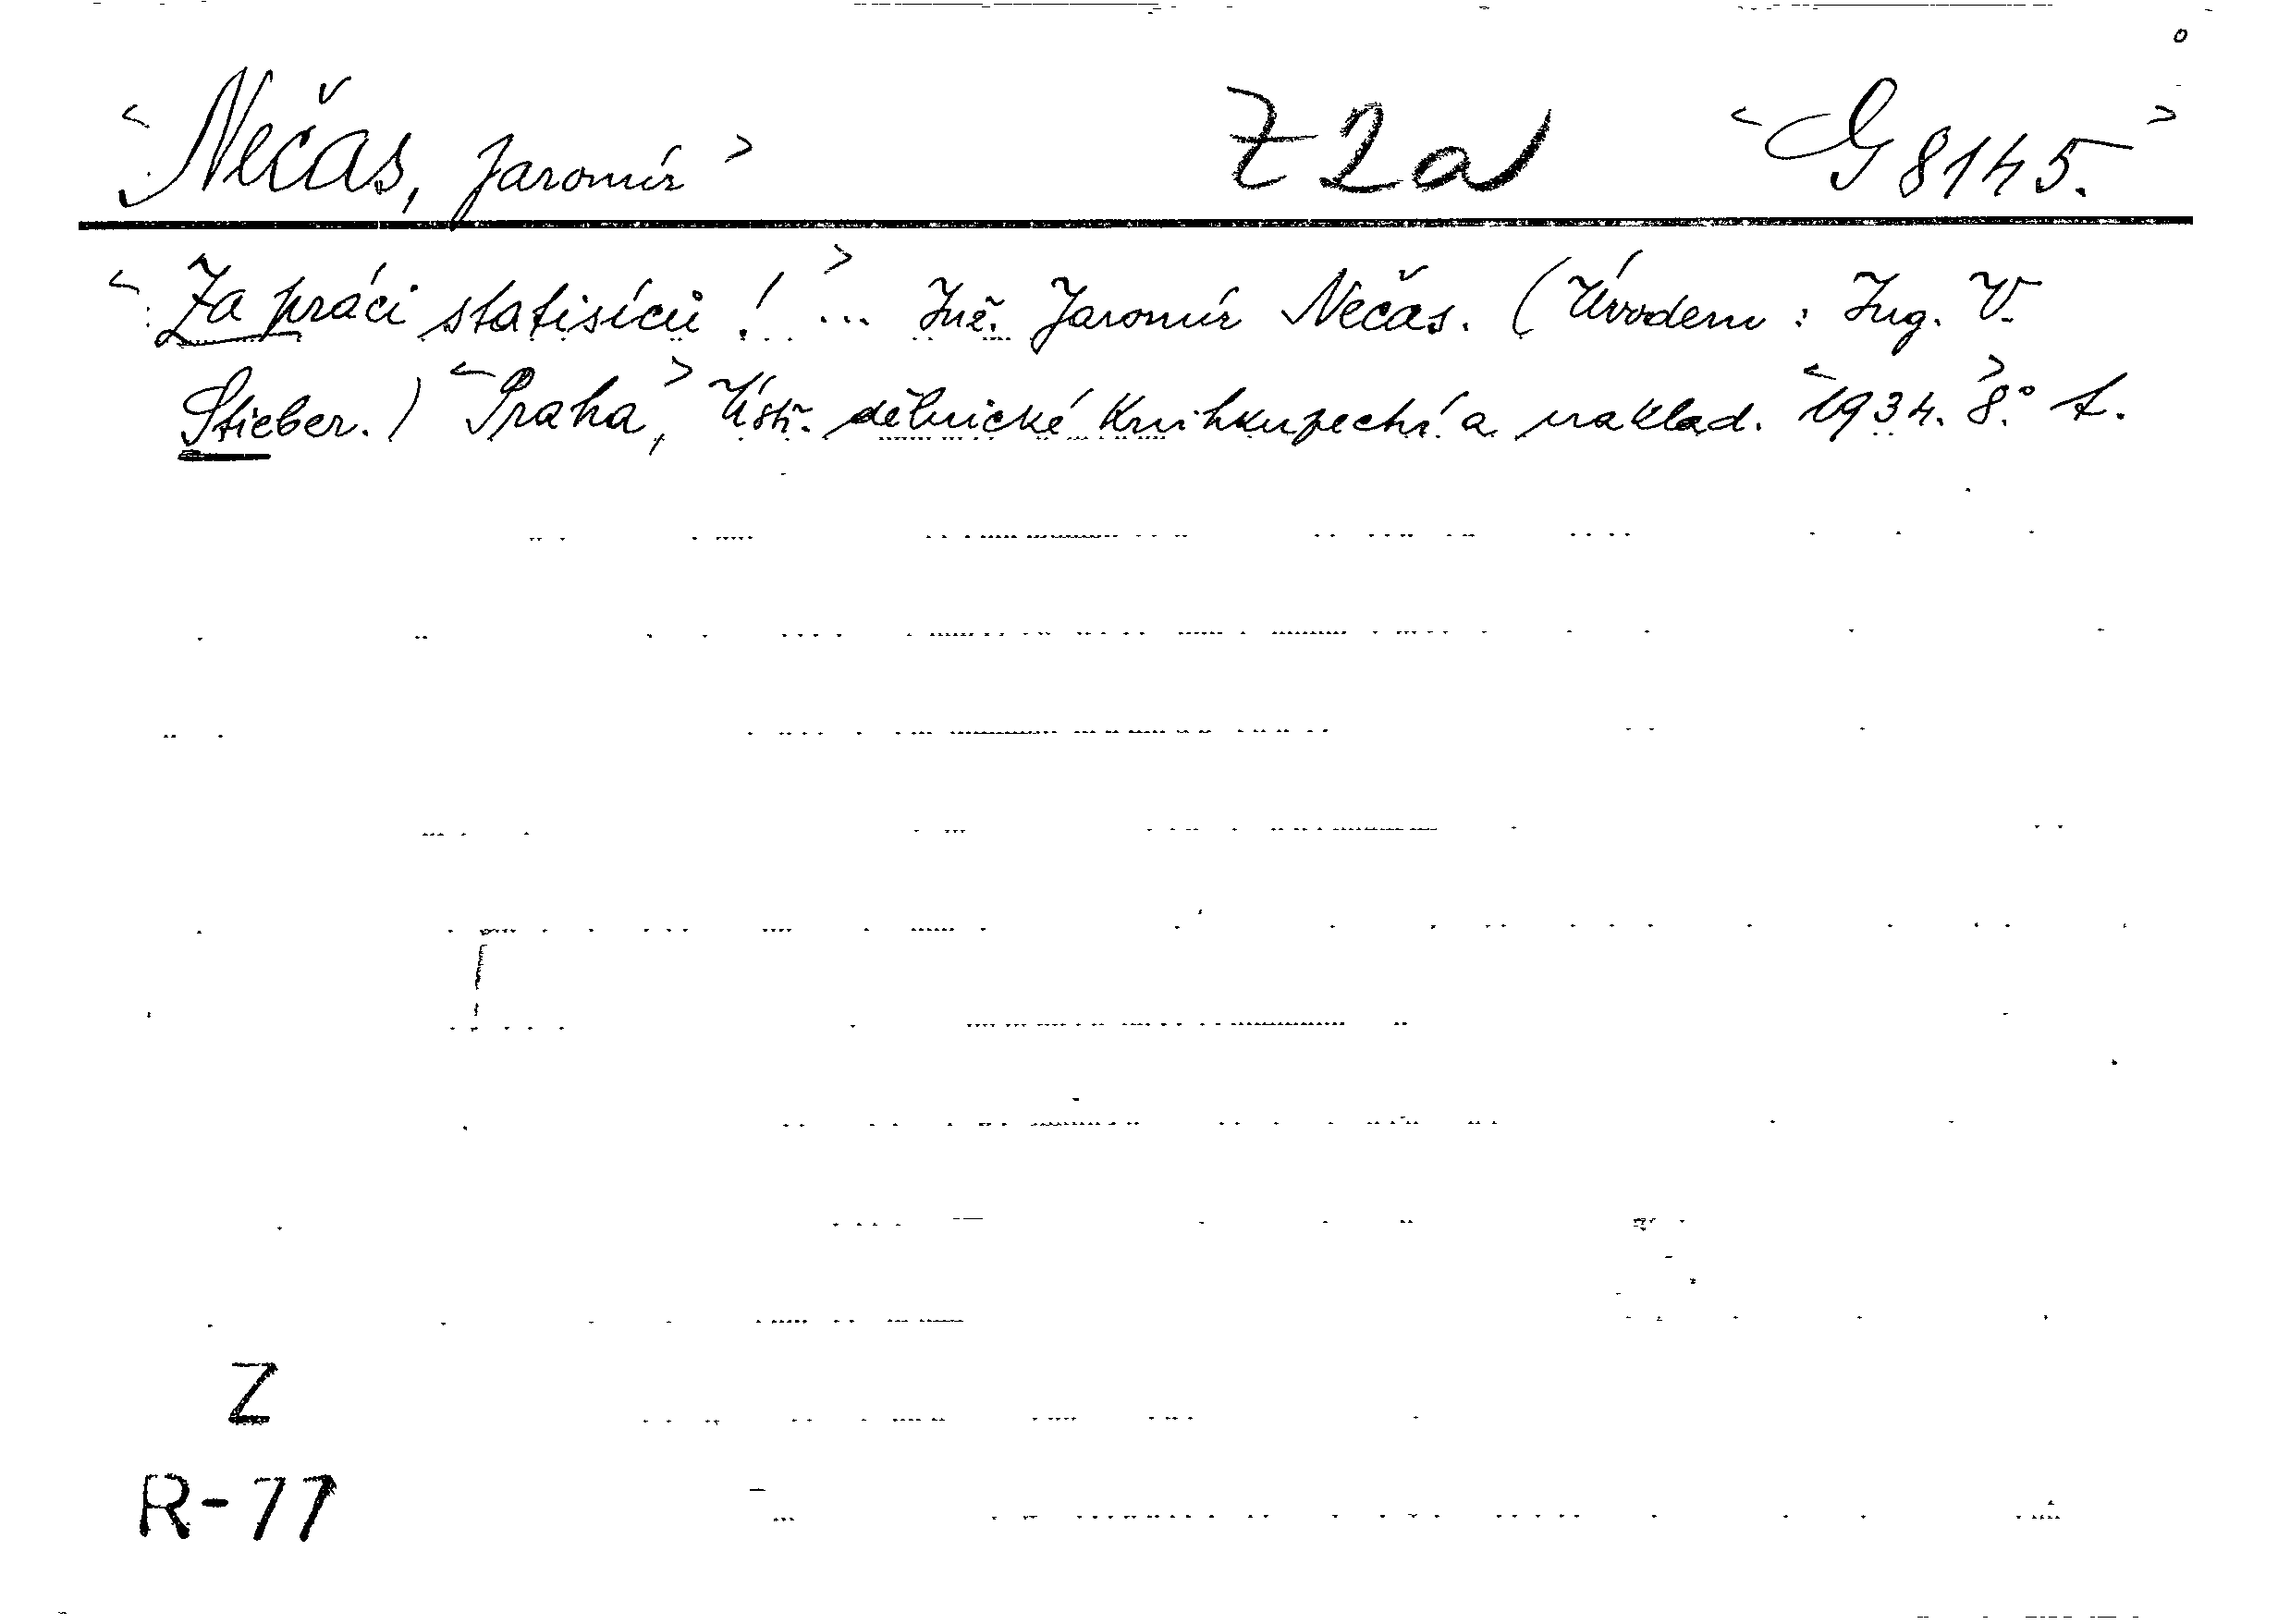 <Nečas, Jaromír> Z 2a <G 8145.>
<Za práci statisíců!> ... Inž. Jaromír Nečas. (Úvodem: Ing. V.
Stieber.) <Praha,> Ústř. dělnické knihkupectví a naklad. <1934.> 8.° t.
Z
R-77